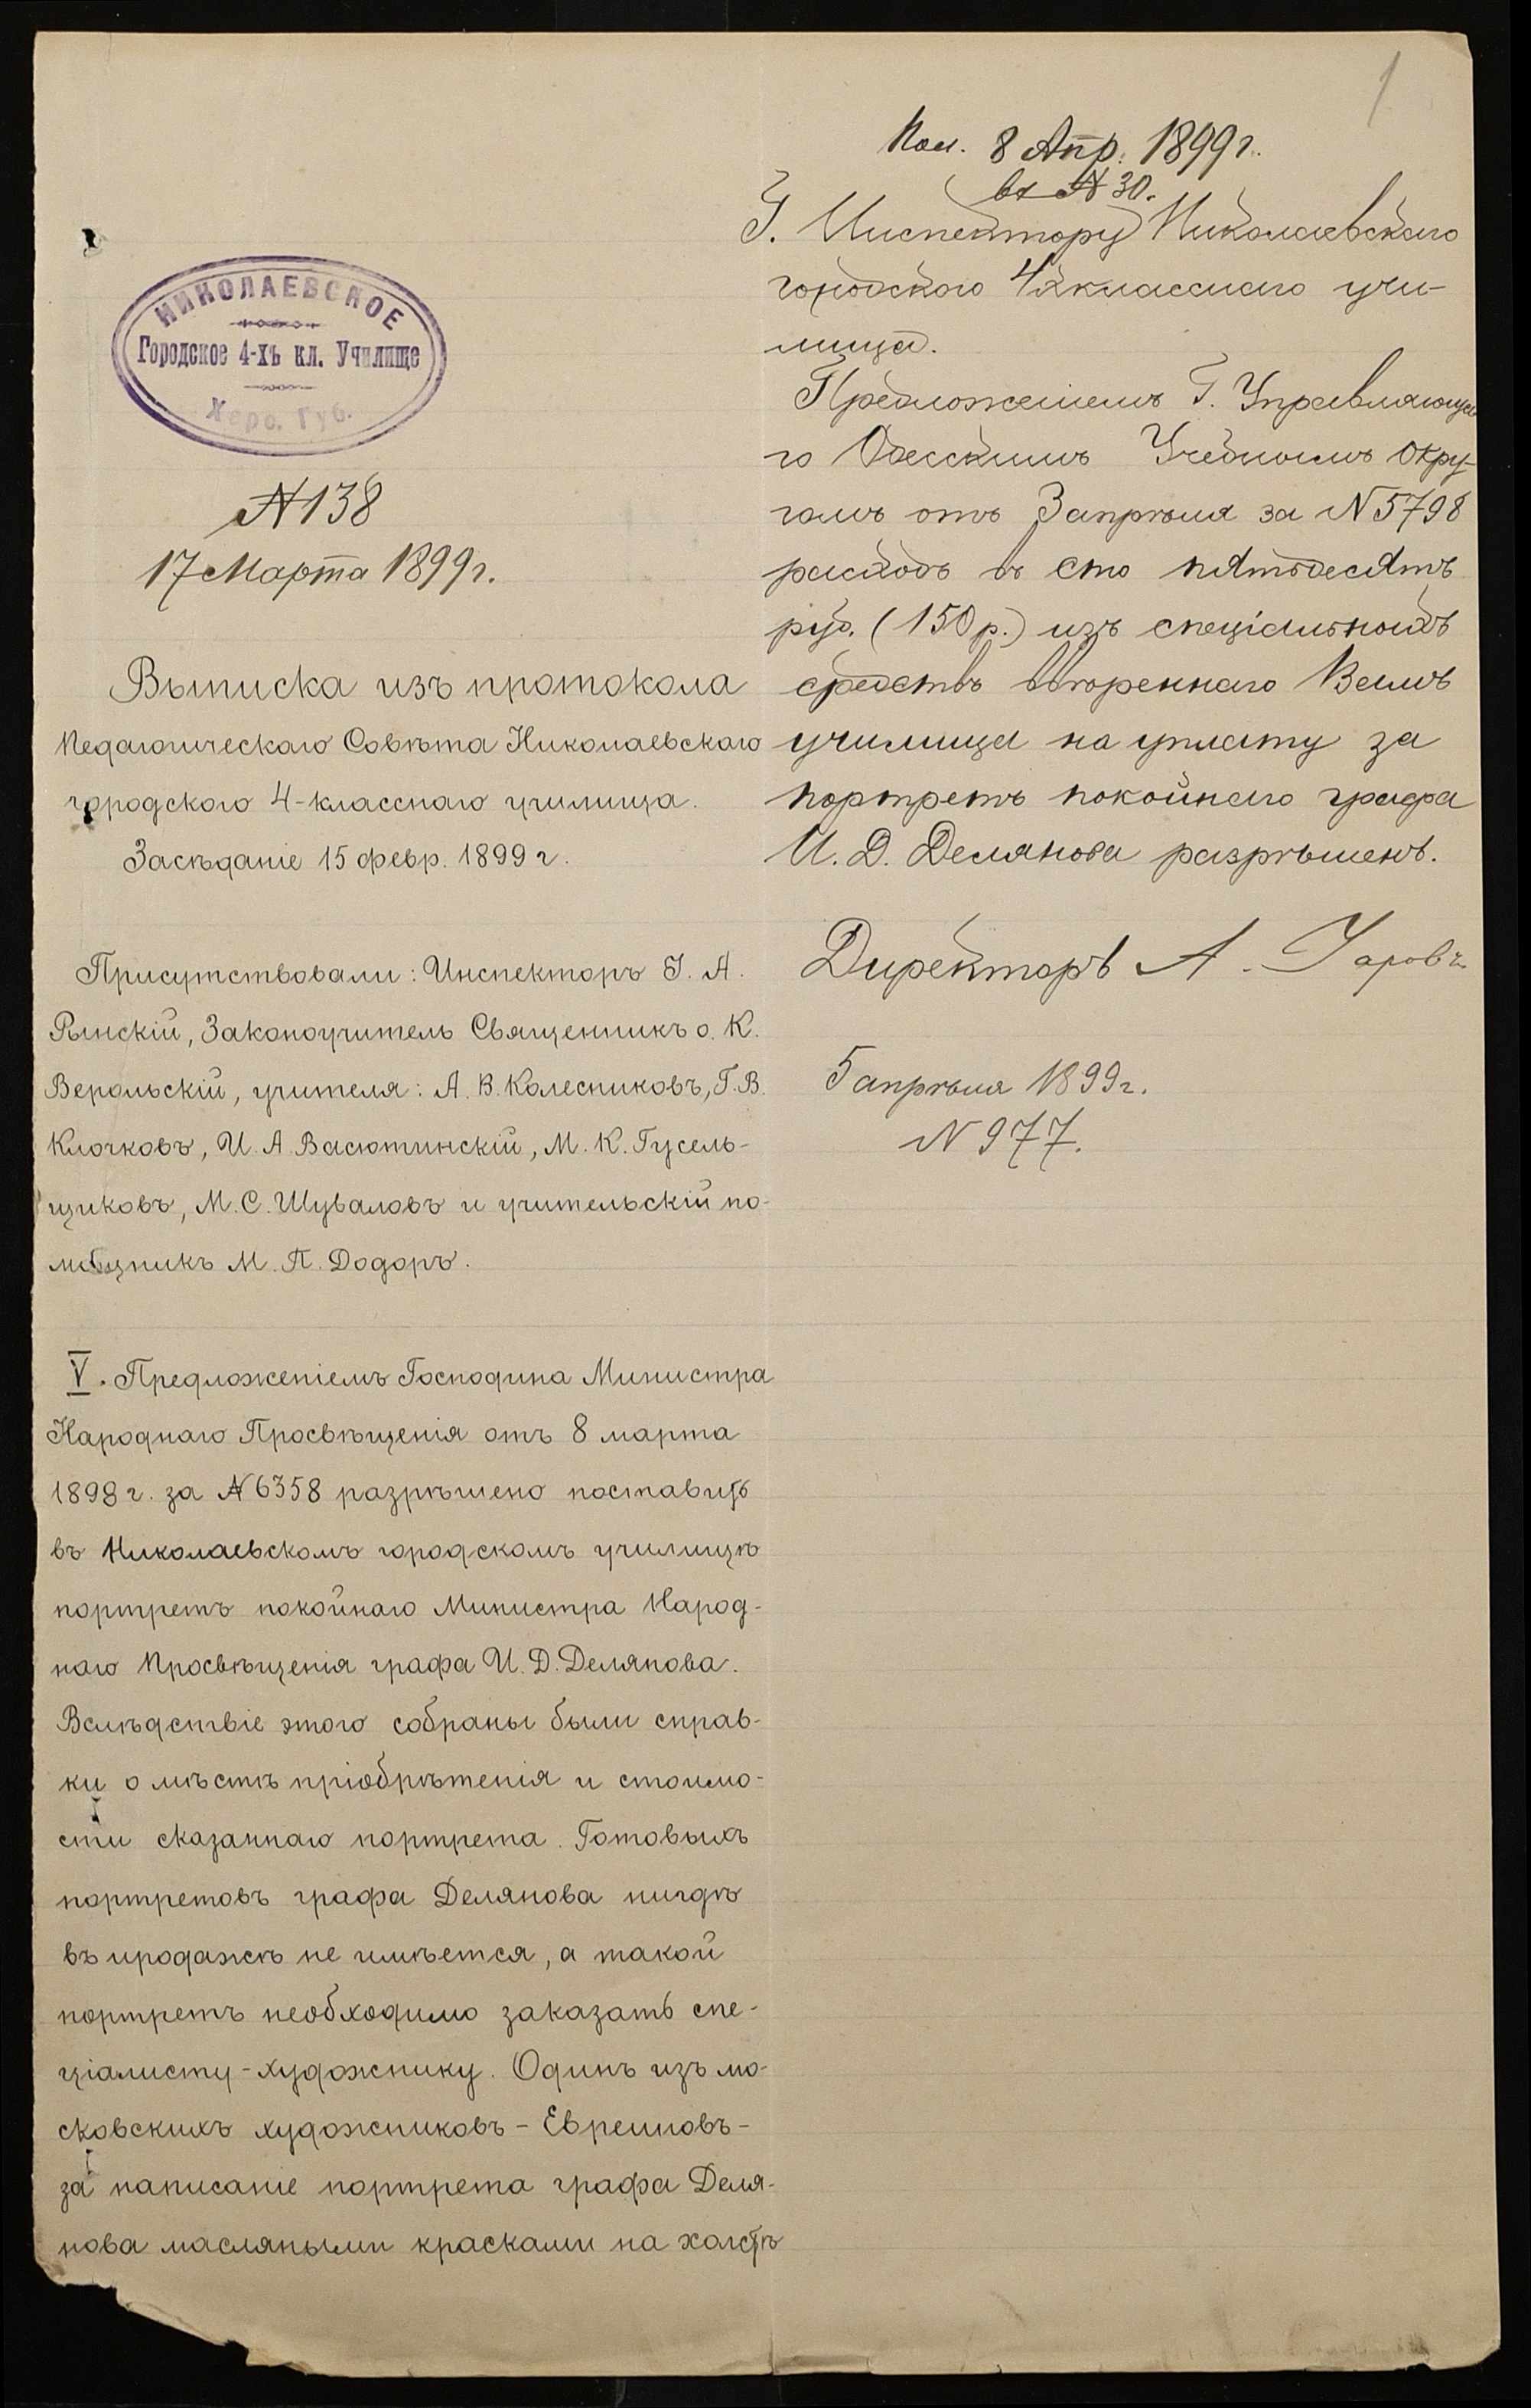 1
НИКОЛАЕВСКОЕ
Городское 4-хъ кл. Училище
Херс. Губ.
№ 138
17 Марта 1899 г.
Выписка изъ протокола
Педагогическаго Совѣта Николаевскаго
городского 4-класснаго училища.
Засѣданіе 15 февр. 1899 г.
Присутствовали: Инспекторъ І. А.
Рынскій, Законоучитель Священникъ о. К.
Верольскій, учителя: А. В. Колесниковъ, Г. В.
Клочковъ, И. А. Васютинскій, М. К. Гусель-
щиковъ, М. С. Шуваловъ и учительскій по-
мощникъ М. П. Додоръ.
V. Предложеніемъ Господина Министра
Народнаго Просвѣщенія отъ 8 марта
1898 г. за № 6358 разрѣшено поставить
въ Николаевскомъ городскомъ училищѣ
портретъ покойнаго Министра Народ-
наго Просвѣщенія графа И. Д. Делянова.
Вслѣдствіе этого собраны были справ-
ки о мѣстѣ пріобрѣтенія и стоимо-
сти сказаннаго портрета. Готовыхъ
портретовъ графа Делянова нигдѣ
въ продажѣ не имѣется, а такой
портретъ необходимо заказать спе-
ціалисту-художнику. Одинъ изъ мо-
сковскихъ художниковъ - Евреиновъ -
за написаніе портрета графа Деля-
нова масляными красками на холстѣ
Пол. 8 Апр. 1899 г.
вх № 30.
Г. Инспектору Николаевскаго
городского 4хкласснаго учи-
лища.
Предложеніемъ Г. Управляюща
го Одесскимъ Учебнымъ Окру-
гомъ отъ 3 апрѣля за № 5798
расходъ въ сто пятьдесятъ
руб. (150 р.) изъ спеціальныхъ
средствъ ввѣреннаго Вамъ
училища на уплату за
портретъ покойнаго графа
И. Д. Делянова разрѣшенъ.
Директоръ А.
5 апрѣля 1899 г.
№ 977.